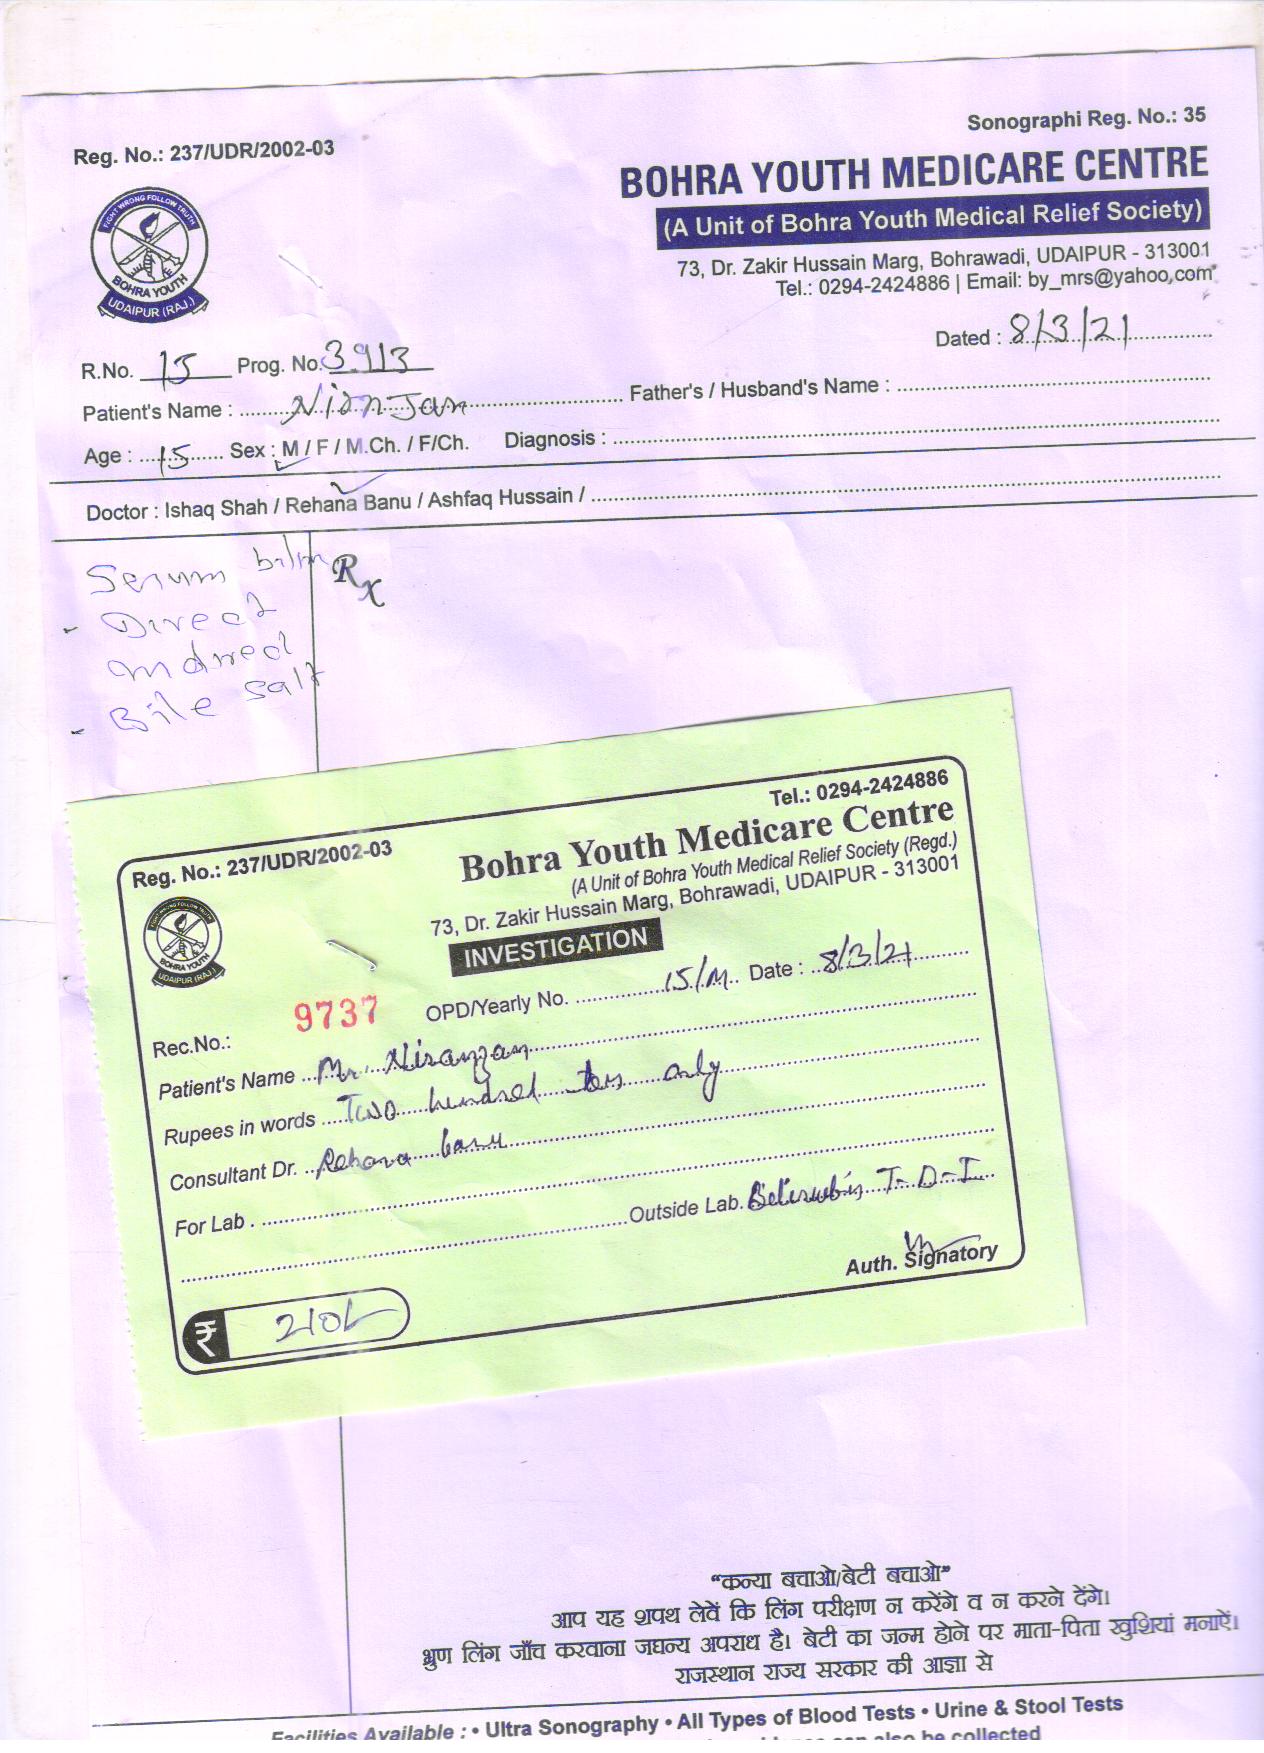 Sonographi Reg. No.: 35
Reg. No.: 237/UDR/2002-03
BOHRA YOUTH MEDICARE CENTRE
(A Unit of Bohra Youth Medical Relief Society)
73, Dr. Zakir Hussain Marg, Bohrawadi, UDAIPUR - 313001
Tel.: 0294-2424886 | Email: by_mrs@yahoo.com
FIGHT WRONG FOLLOW TRUTH
BOHRA YOUTH
UDAIPUR (RAJ.)
Dated : 8/3/21
R.No. 15 Prog. No. 3913
Patient's Name : Niranjan Father's / Husband's Name :
Age : 15 Sex : M / F / M.Ch. / F/Ch. Diagnosis :
Doctor : Ishaq Shah / Rehana Banu / Ashfaq Hussain /
Rx
Serum
- Direct
Indirect
- Bile salt
Tel.: 0294-2424886
Reg. No.: 237/UDR/2002-03
Bohra Youth Medicare Centre
(A Unit of Bohra Youth Medical Relief Society (Regd.)
73, Dr. Zakir Hussain Marg, Bohrawadi, UDAIPUR - 313001
FIGHT WRONG FOLLOW TRUTH
BOHRA YOUTH
UDAIPUR (RAJ.)
INVESTIGATION
Rec.No.: 9737 OPD/Yearly No. 15/M Date : 8/3/21
Patient's Name Mr. Niranjan
Rupees in words Two hundred ten only
Consultant Dr. Rehana banu
For Lab .
Outside Lab. T-D-I
Auth. Signatory
₹ 210/-
“कन्या बचाओ/बेटी बचाओ”
आप यह शपथ लेवें कि लिंग परीक्षण न करेंगे व न करने देंगे।
भ्रुण लिंग जाँच करवाना जघन्य अपराध है। बेटी का जन्म होने पर माता-पिता खुशियां मनाऐं।
राजस्थान राज्य सरकार की आज्ञा से
Facilities Available : • Ultra Sonography • All Types of Blood Tests • Urine & Stool Tests
can also be collected